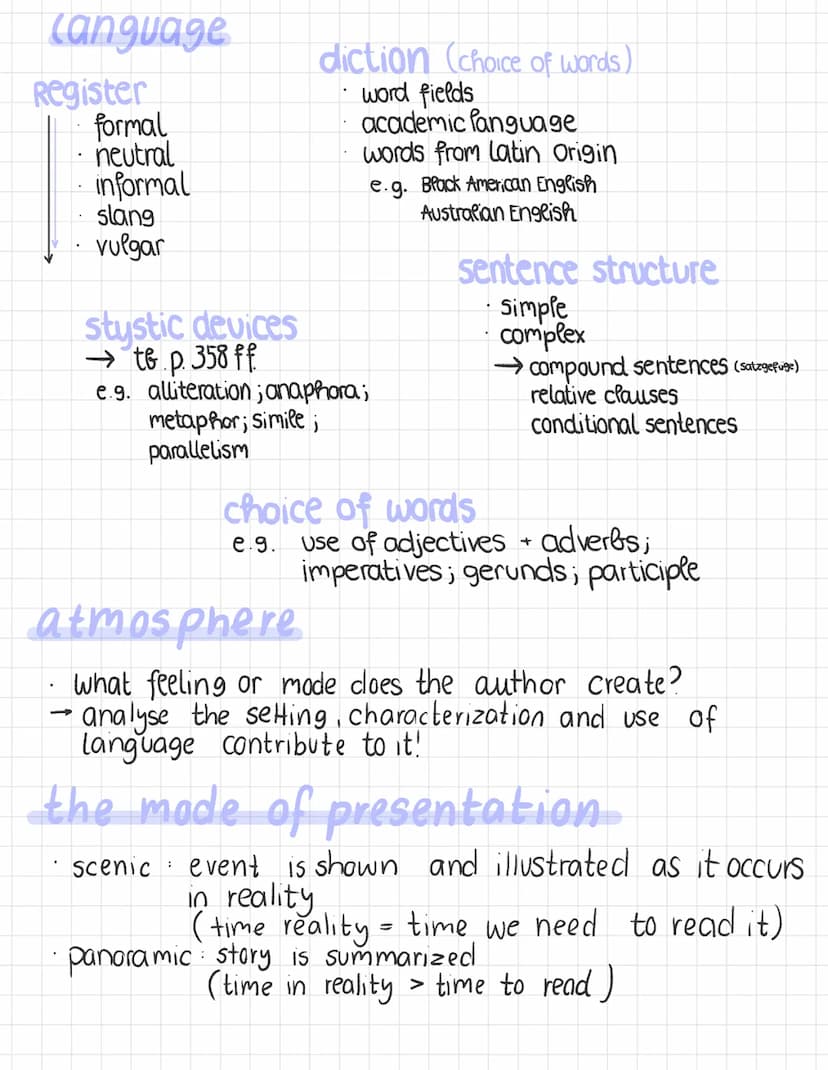 language
Register
· formal
· neutral
· informal
· slang
· vulgar
diction (choice of words)
· word fields
· academic language
· words from latin origin
e.g. Black American English
Australian English
sentence structure
· simple
· complex
→ compound sentences (satzgefüge)
relative clauses
conditional sentences
stystic devices
→ tb p. 358 ff.
e.g. alliteration ; anaphora ;
metaphor ; simile ;
parallelism
choice of words
e.g. use of adjectives + adverbs ;
imperatives ; gerunds ; participle
atmosphere
· what feeling or mode does the author create?
→ analyse the setting, characterization and use of
language contribute to it!
the mode of presentation
· scenic : event is shown and illustrated as it occurs
in reality
(time reality = time we need to read it)
· panoramic : story is summarized
(time in reality > time to read)